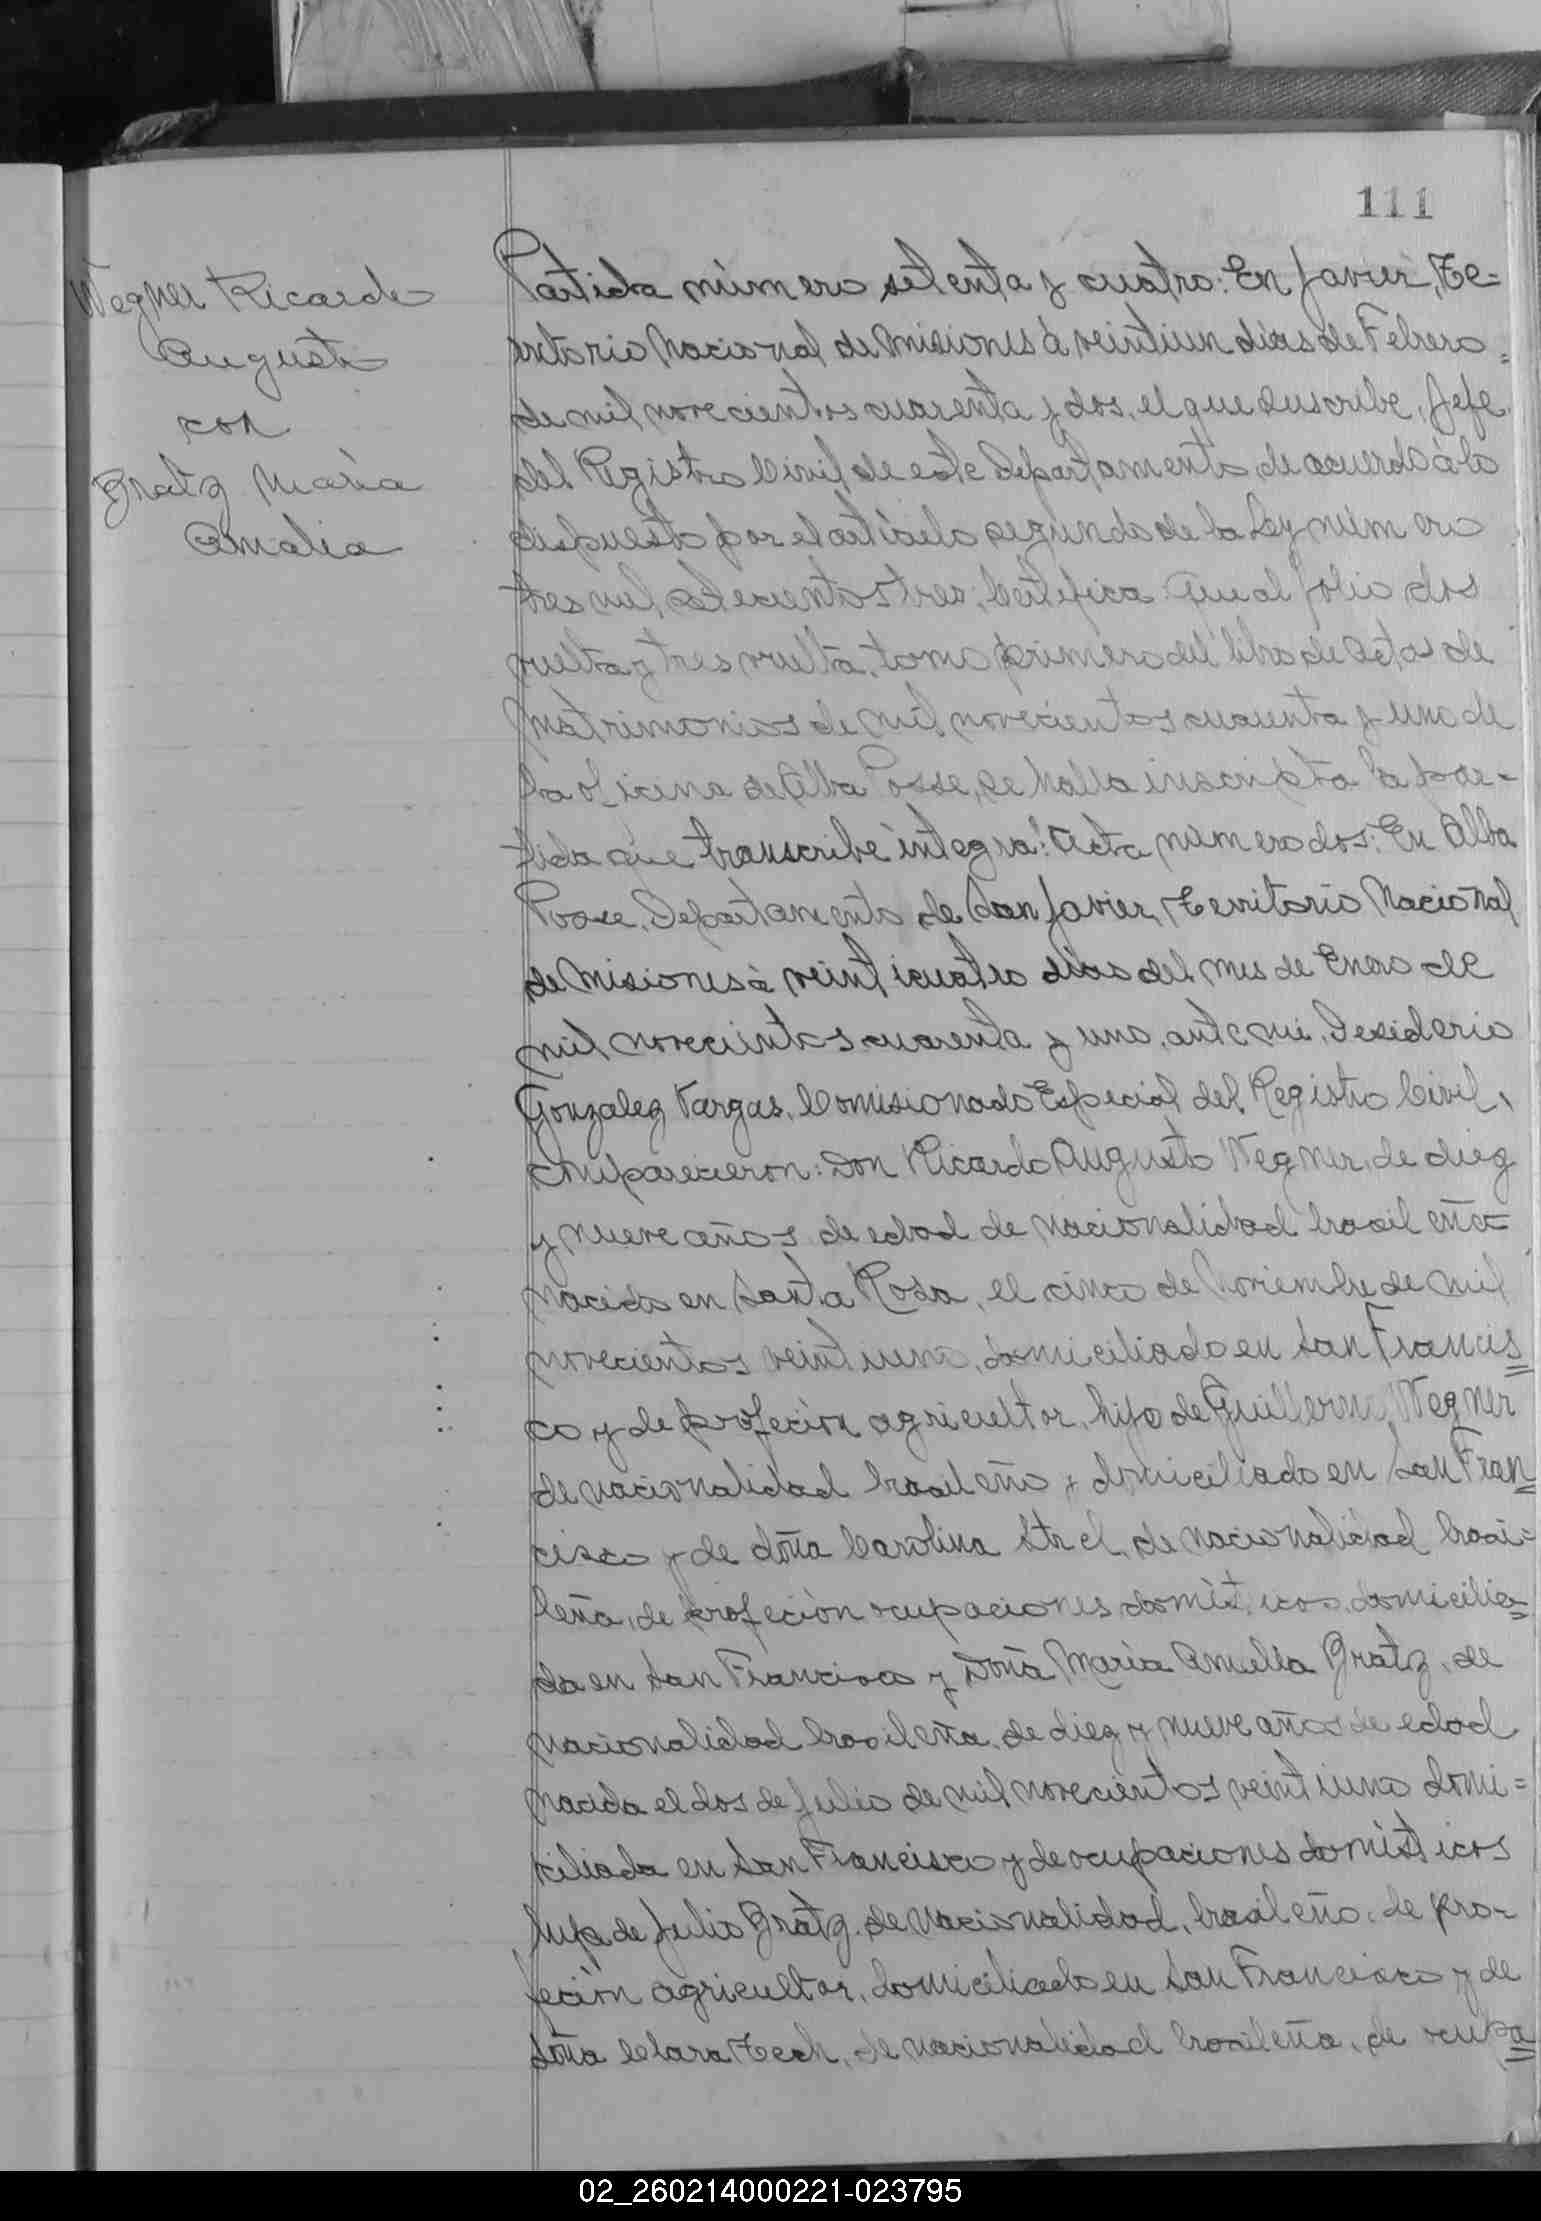 111
Wegner Ricardo
Augusto
con
Gratz María
Amalia
Partida número setenta y cuatro: En Javier, Te-
rritorio Nacional de Misiones á veintiun dias de Febrero
de mil novecientos cuarenta y dos, el que suscribe, Jefe
del Registro Civil de este Departamento, de acuerdo á lo
dispuesto por el artículo segundo de la Ley número
tres mil setecientos tres; Certifica: Que al folio dos
vuelta y tres vuelta, tomo primero del libro de Actas de
Matrimonios de mil novecientos cuarenta y uno de
la oficina de Alba Posse, se halla inscripta la par-
tida que transcribe integra: Acta numero dos: En Alba
Posse, Departamento de San Javier, Territorio Nacional
de Misiones á veinticuatro dias del mes de Enero de
mil novecientos cuarenta y uno, ante mi, Desiderio
Gonzalez Vargas, Comisionado Especial del Registro Civil,
comparecieron: Don Ricardo Augusto Wegner, de diez
y nueve años de edad de nacionalidad brasileña=
nacido en Santa Rosa, el cinco de Noviembre de mil
novecientos veintiuno, domiciliado en San Francis=
co y de profeción agricultor, hijo de Guillermo Wegner
de nacionalidad brasileño y domiciliado en San Fran=
cisco y de doña Carolina, de nacionalidad brasi=
leña, de profeción ocupaciones domésticos, domicilia=
da en San Francisco y Doña María Amelia Gratz, de
nacionalidad brasileña, de diez y nueve años de edad
nacida el dos de Julio de mil novecientos veintiuno domi=
ciliada en San Francisco y de ocupaciones domésticos
hija de Julio Gratz, de nacionalidad, brasileño, de pro-
feción agricultor, domiciliado en San Francisco y de
doña Clara Zech, de nacionalidad brasileña, de ocupa=
02_260214000221-023795